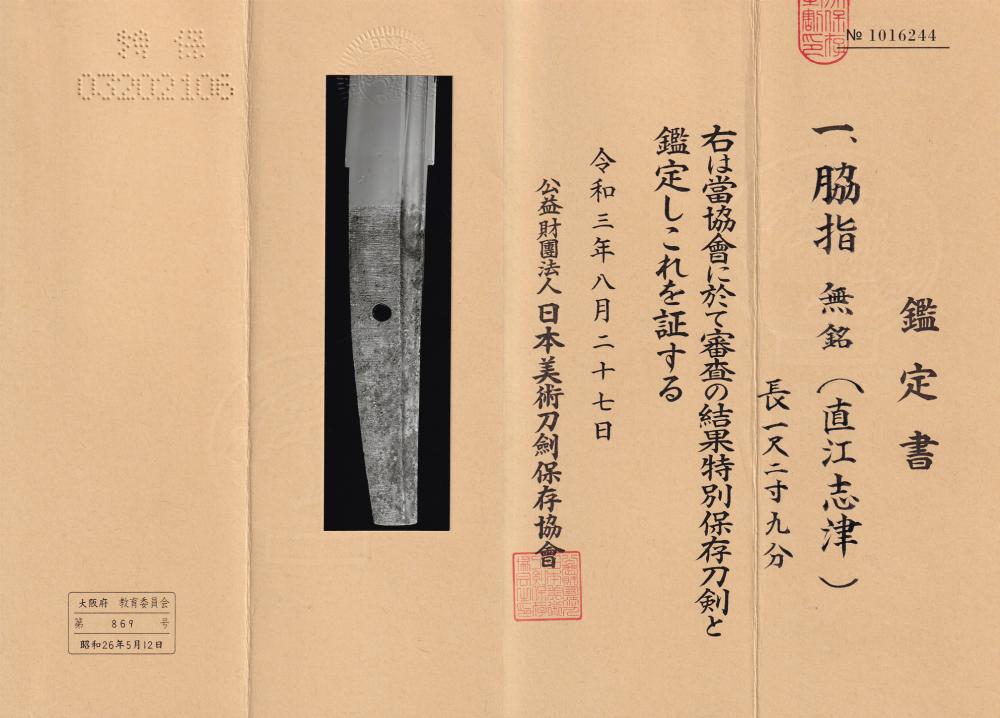 鑑定書
一、脇指 無銘(直江志津)
長一尺二寸九分
右は當協會に於て審査の結果特別保存刀剣と
鑑定しこれを証する
令和三年八月二十七日
公益財團法人日本美術刀劍保存協會
№ 1016244
特保
03202106
大阪府 教育委員会
第 869 号
昭和26年5月12日